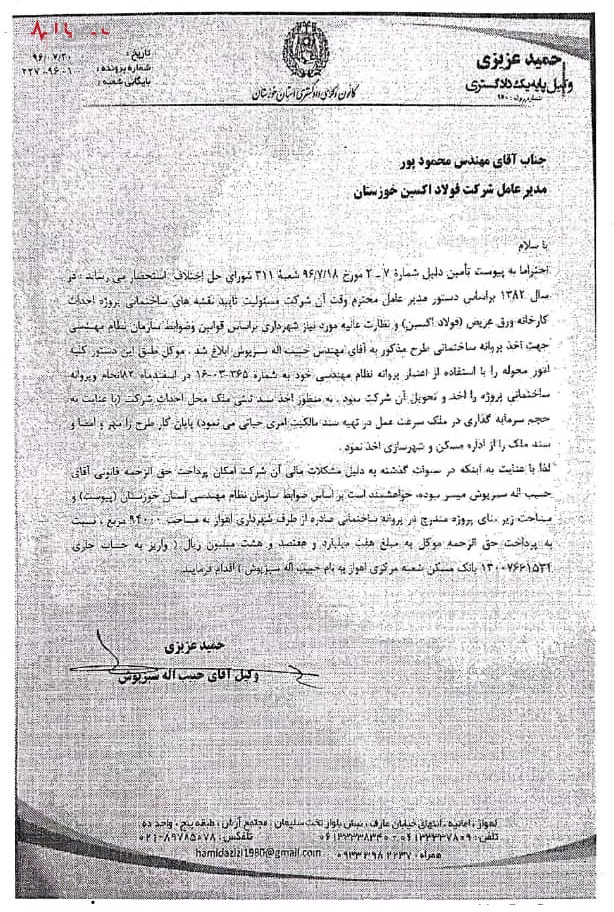 حمید عزیزی
وکیل پایه یک دادگستری
تاریخ : ۹۶/۷/۲۰
شماره پرونده : ۹۶-۱-۲۲۷
بایگانی شعبه :
کانون وکلای دادگستری استان خوزستان
جناب آقای مهندس محمود پور
مدیر عامل شرکت فولاد اکسین خوزستان
با سلام
احتراما به پیوست تأمین دلیل شمارهٔ ۷ – ۲ مورخ ۹۶/۷/۱۸ شعبهٔ ۳۱۱ شورای حل اختلاف استحضار می رساند : در
سال ۱۳۸۲ براساس دستور مدیر عامل محترم وقت آن شرکت مسئولیت تایید نقشه های ساختمانی پروژه احداث
کارخانه ورق عریض (فولاد اکسین) و نظارت عالیه مورد نیاز شهرداری براساس قوانین وضوابط سازمان نظام مهندسی
جهت اخذ پروانه ساختمانی طرح مذکور به آقای مهندس حبیب اله سبزپوش ابلاغ شد . موکل طبق این دستور کلیه
امور محوله را با استفاده از اعتبار پروانه نظام مهندسی خود به شماره ۳۶۵-۰۳-۱۶ در اسفندماه ۸۲ انجام وپروانه
ساختمانی پروژه را اخذ و تحویل آن شرکت نمود . به منظور اخذ سند ملک محل احداث شرکت (با عنایت به
حجم سرمایه گذاری در ملک سرعت عمل در تهیه سند مالکیت امری حیاتی می نمود) پایان کار طرح را مهر و امضا و
سند ملک را از اداره مسکن و شهرسازی اخذ نمود .
لذا با عنایت به اینکه در سنوات گذشته به دلیل مشکلات مالی آن شرکت امکان پرداخت حق الزحمه قانونی آقای
حبیب اله سبزپوش میسر نبوده، خواهشمند است بر اساس ضوابط سازمان نظام مهندسی استان خوزستان (پیوست) و
مساحت زیر بنای پروژه مندرج در پروانه ساختمانی صادره از طرف شهرداری اهواز به مساحت ۹۴۰۰۰ مربع ، نسبت
به پرداخت حق الزحمه موکل به مبلغ هفت میلیارد و هفتصد و هشت میلیون ریال ( واریز به حساب جاری
بانک مسکن شعبه مرکزی اهواز به نام حبیب اله سبزپوش ) اقدام فرمایید.
حمید عزیزی
وکیل آقای حبیب اله سبزپوش
اهواز ، امانیه ، انتهای خیابان عارف ، نبش بلوار تخت سلیمان ، مجتمع آرتان ، طبقه پنج ، واحد ده
تلفن: ۰۶۱۳۳۳۳۷۸۰۹ - ۰۶۱۳۳۳۳۸۳۴۰ تلفکس: ۸۹۷۸۵۰۷۸-۰۲۱
همراه: ۰۹۳۳۳۹۸۲۲۳۷ hamidazizi1980@gmail.com